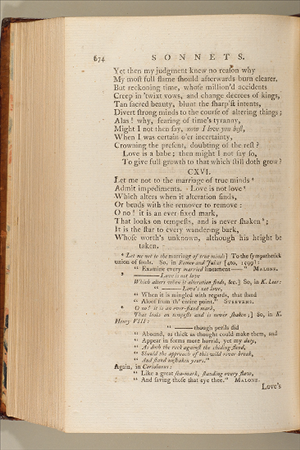 674 SONNETS.
Yet then my judgment knew no reason why
My most full flame should afterwards burn clearer.
But reckoning time, whose million'd accidents
Creep in 'twixt vows, and change decrees of kings,
Tan sacred beauty, blunt the sharp'st intents,
Divert strong minds to the course of altering things;
Alas! why, fearing of time's tyranny,
Might I not then say, now I love you best,
When I was certain o'er incertainty,
Crowning the present, doubting of the rest?
Love is a babe; then might I not say so,
To give full growth to that which still doth grow?
CXVI.
Let me not to the marriage of true minds
Admit impediments. Love is not love
Which alters when it alteration finds,
Or bends with the remover to remove:
O no! it is an ever-fixed mark,
That looks on tempests, and is never shaken;
It is the star to every wandering bark,
Whose worth's unknown, although his height be
taken.
Let me not to the marriage of true minds] To the sympathetick
union of souls. So, in Romeo and Juliet
" Examine every married lineament—" MALONE.
——Love is not love
Which alters when it alteration finds, &c.] So, in K. Lear:
" ——Love's not love,
" When it is mingled with regards, that stand
" Aloof from th' entire point." STEEVENS.
O no! it is an ever-fixed mark,
That looks on tempests and is never shaken;] So, in K.
Henry VIII:
" ——though perils did
" Abound, as thick as thought could make them, and
" Appear in forms more horrid, yet my duty,
" As doth the rock against the chiding flood,
" Should the approach of this wild river break,
" And stand unshaken yours."
Again, in Coriolanus:
" Like a great sea-mark, standing every flaw,
" And saving those that eye thee." MALONE.
Love's